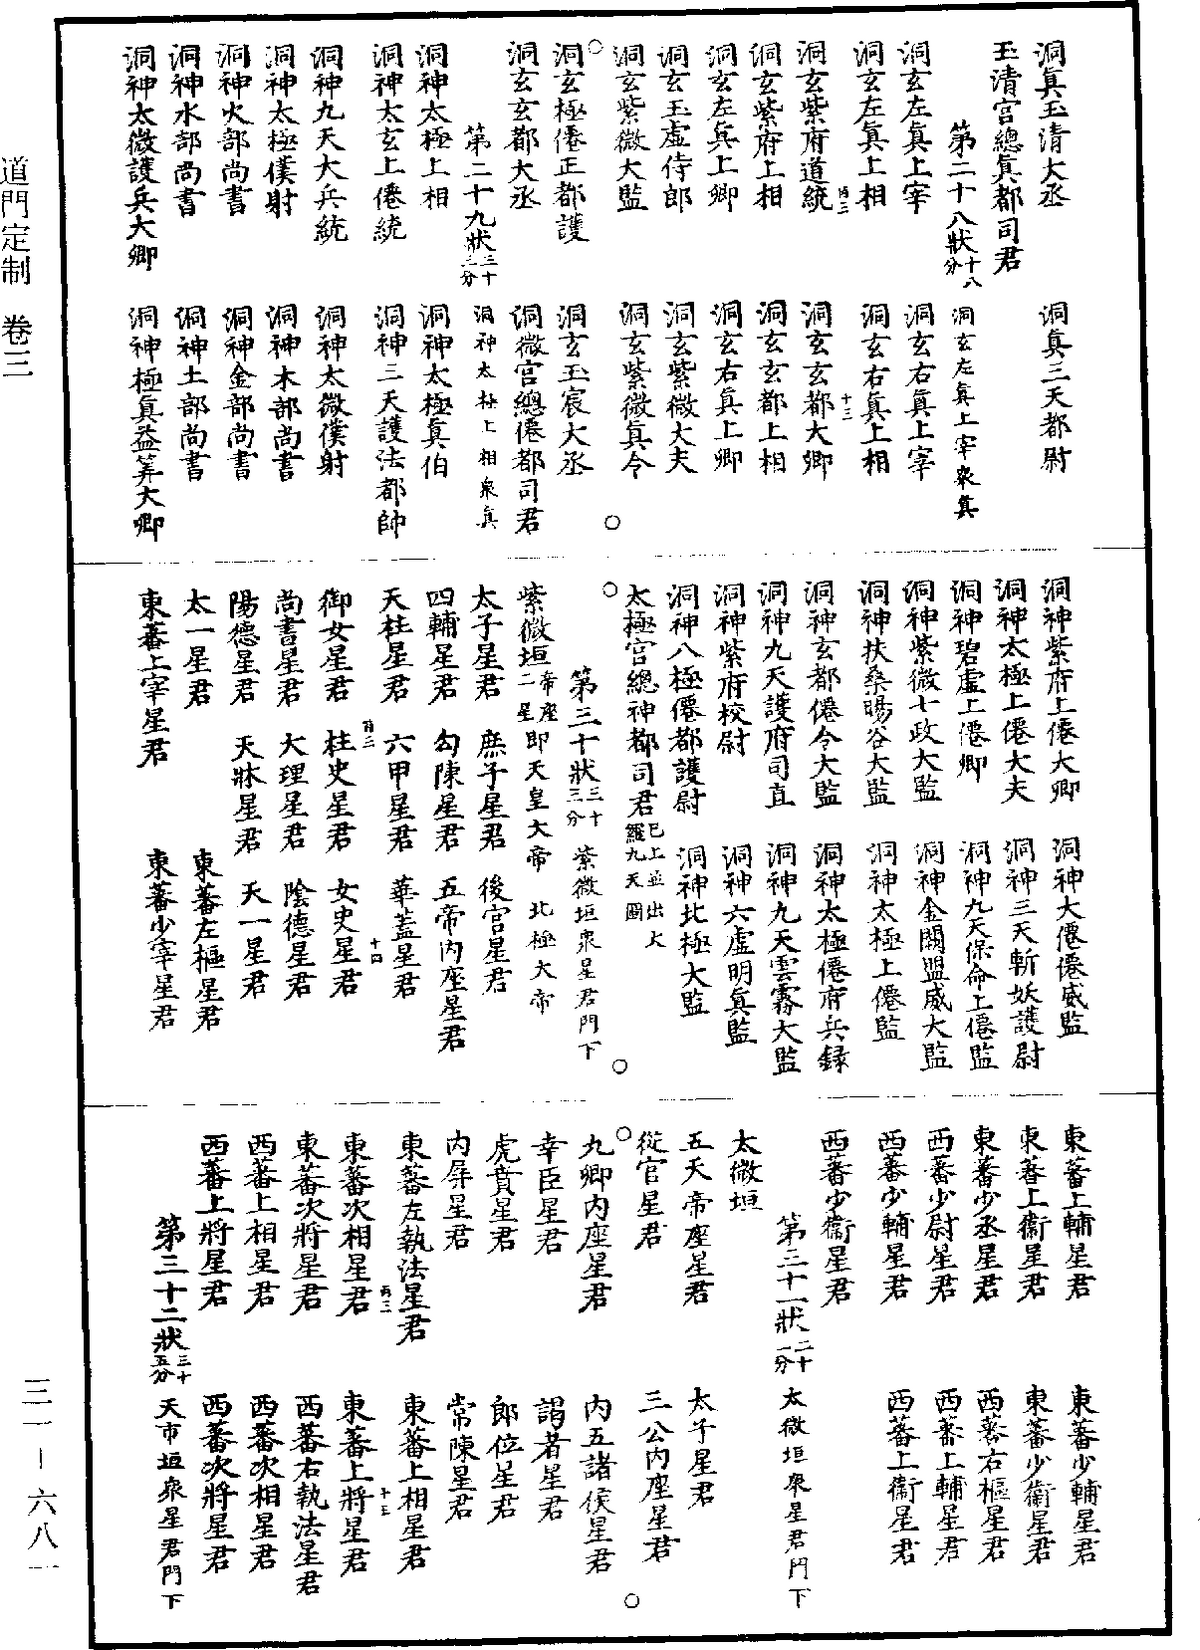 洞眞玉清大丞　洞眞三天都尉
玉清宮總眞都司君
第二十八狀十八分　洞玄左眞上宰衆眞
洞玄左眞上宰　洞玄右眞上宰
洞玄左眞上相　洞玄右眞上相
洞玄紫府道統　洞玄玄都大卿
洞玄紫府上相　洞玄玄都上相
洞玄左眞上卿　洞玄右眞上卿
洞玄玉虛侍郎　洞玄紫微大夫
洞玄紫微大監　洞玄紫微眞令
洞玄極僊正都護　洞玄玉宸大丞
洞玄玄都大丞　洞微宮總僊都司君
第二十九狀三十三分　洞神太極上相衆眞
洞神太極上相　洞神太極眞伯
洞神太玄上僊統　洞神三天護法都帥
洞神九天大兵統　洞神太微僕射
洞神太極僕射　洞神木部尚書
洞神火部尚書　洞神金部尚書
洞神水部尚書　洞神土部尚書
洞神太微護兵大卿　洞神極眞益筭大卿
洞神紫府上僊大卿　洞神大僊僊威監
洞神太極上僊大夫　洞神三天斬妖護尉
洞神碧虛上僊卿　洞神九天保命上僊監
洞神紫微七政大監　洞神金闕盟威大監
洞神扶桑暘谷大監　洞神太極上僊監
洞神玄都僊令大監　洞神太極僊府兵録
洞神九天護府司直　洞神九天雲霧大監
洞神紫府校尉　洞神六虛明眞監
洞神八極僊都護尉　洞神北極大監
太極宮總神都司君已上並出大羅九天圖
第三十狀三十三分　紫微垣衆星君門下
紫微垣帝座二星即天皇大帝　北極大帝
太子星君　庶子星君　後宮星君
四輔星君　勾陳星君　五帝內座星君
天柱星君　六甲星君　華蓋星君
御女星君　柱史星君　女史星君
尚書星君　大理星君　陰德星君
陽德星君　天牀星君　天一星君
太一星君　東蕃左樞星君
東蕃上宰星君　東蕃少宰星君
東蕃上輔星君　東蕃少輔星君
東蕃上衞星君　東蕃少衞星君
東蕃少丞星君　西蕃右樞星君
西蕃少尉星君　西蕃上輔星君
西蕃少輔星君　西蕃上衞星君
西蕃少衞星君
第三十一狀二十一分　太微垣衆星君門下
太微垣
五天帝座星君　太子星君
從官星君　三公內座星君
九卿內座星君　內五諸侯星君
幸臣星君　謁者星君
虎賁星君　郎位星君
內屏星君　常陳星君
東蕃左執法星君　東蕃上相星君
東蕃次相星君　東蕃上將星君
東蕃次將星君　西蕃右執法星君
西蕃上相星君　西蕃次相星君
西蕃上將星君　西蕃次將星君
第三十二狀三十五分　天市垣衆星君門下
道門定制　卷三
三一－六八一